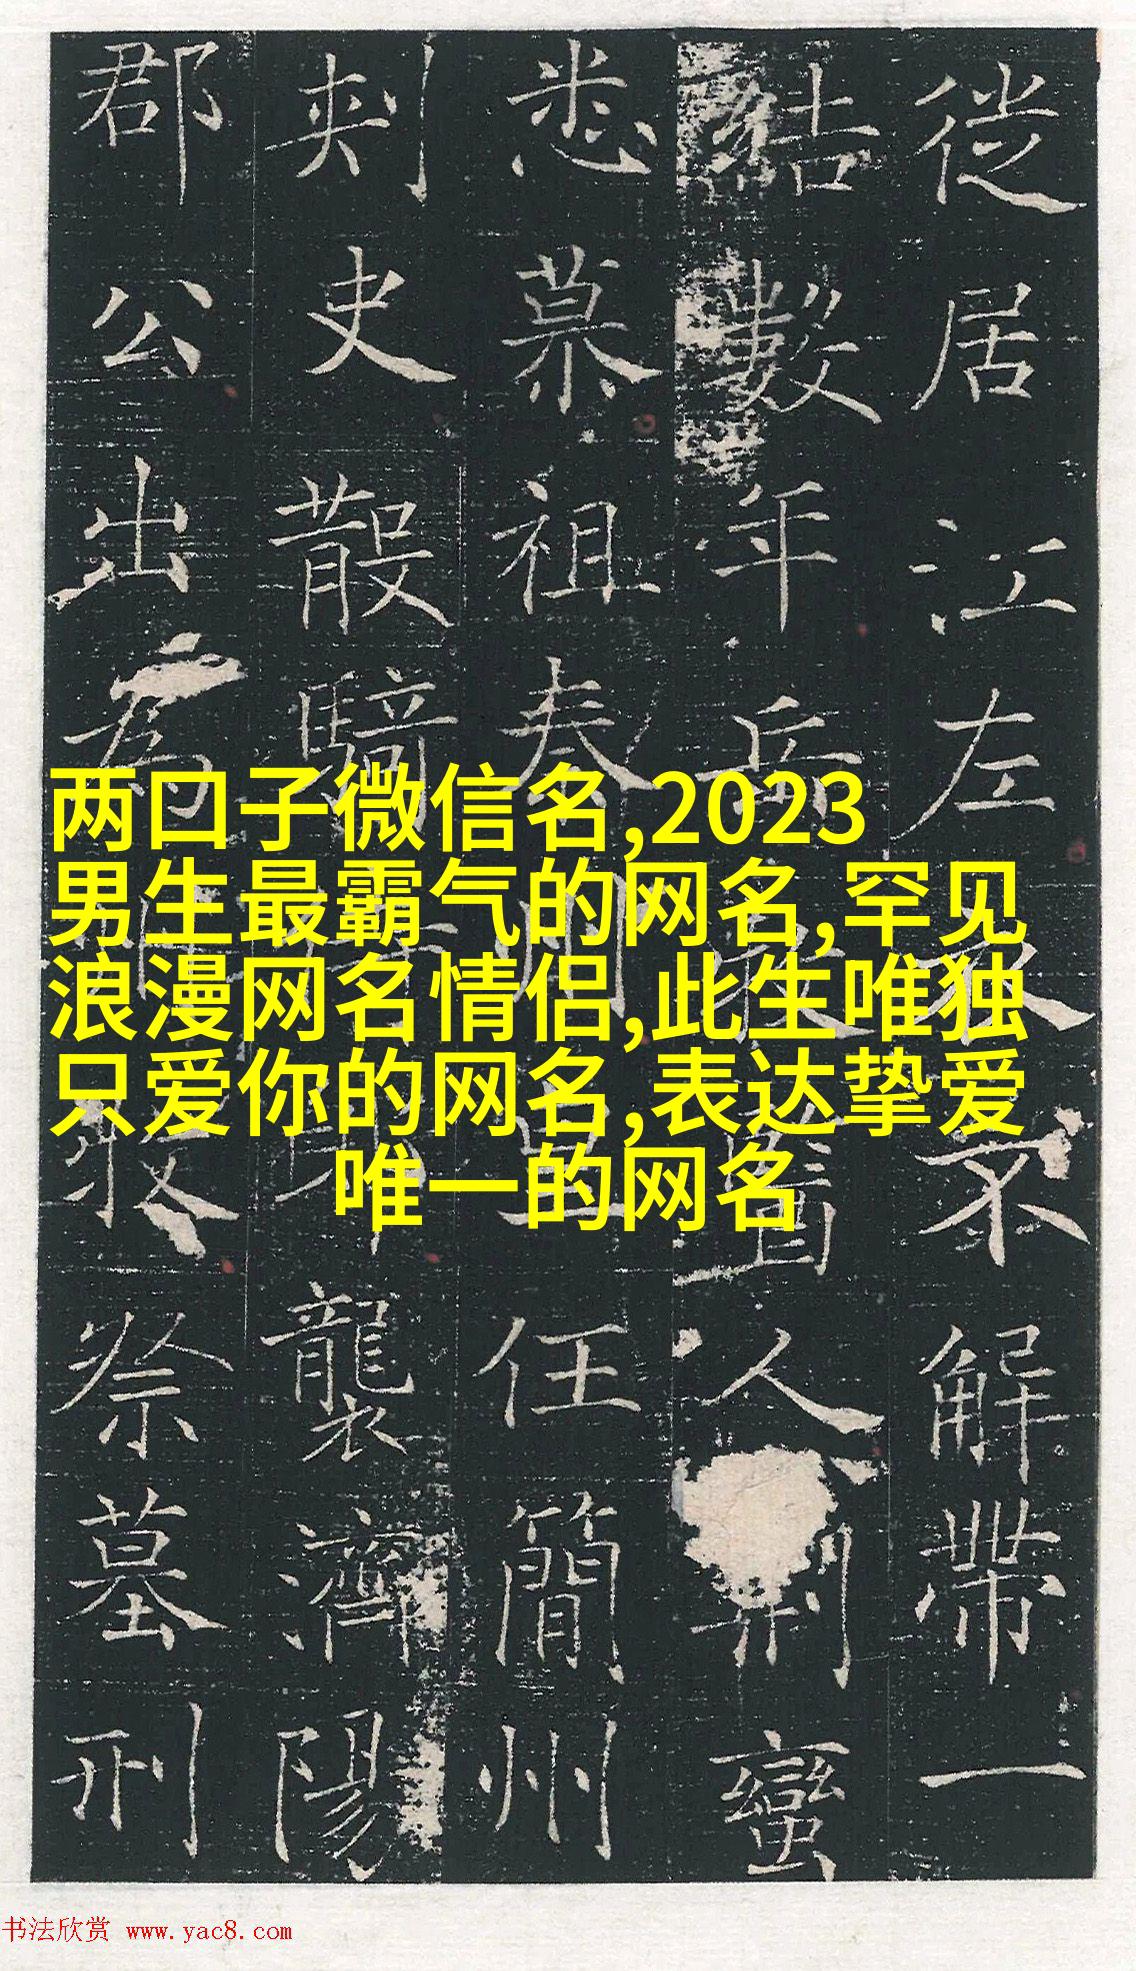 两口子微信名,2023
男生最霸气的网名,罕见
浪漫网名情侣,此生唯独
只爱你的网名,表达挚爱
唯一的网名
徙居江左衣不解帶一
結數年人制蠻
悉慕祖任簡州
刺史散騎襲濟陽
郡公出為祭墓刑
书法欣赏 www.yac8.com